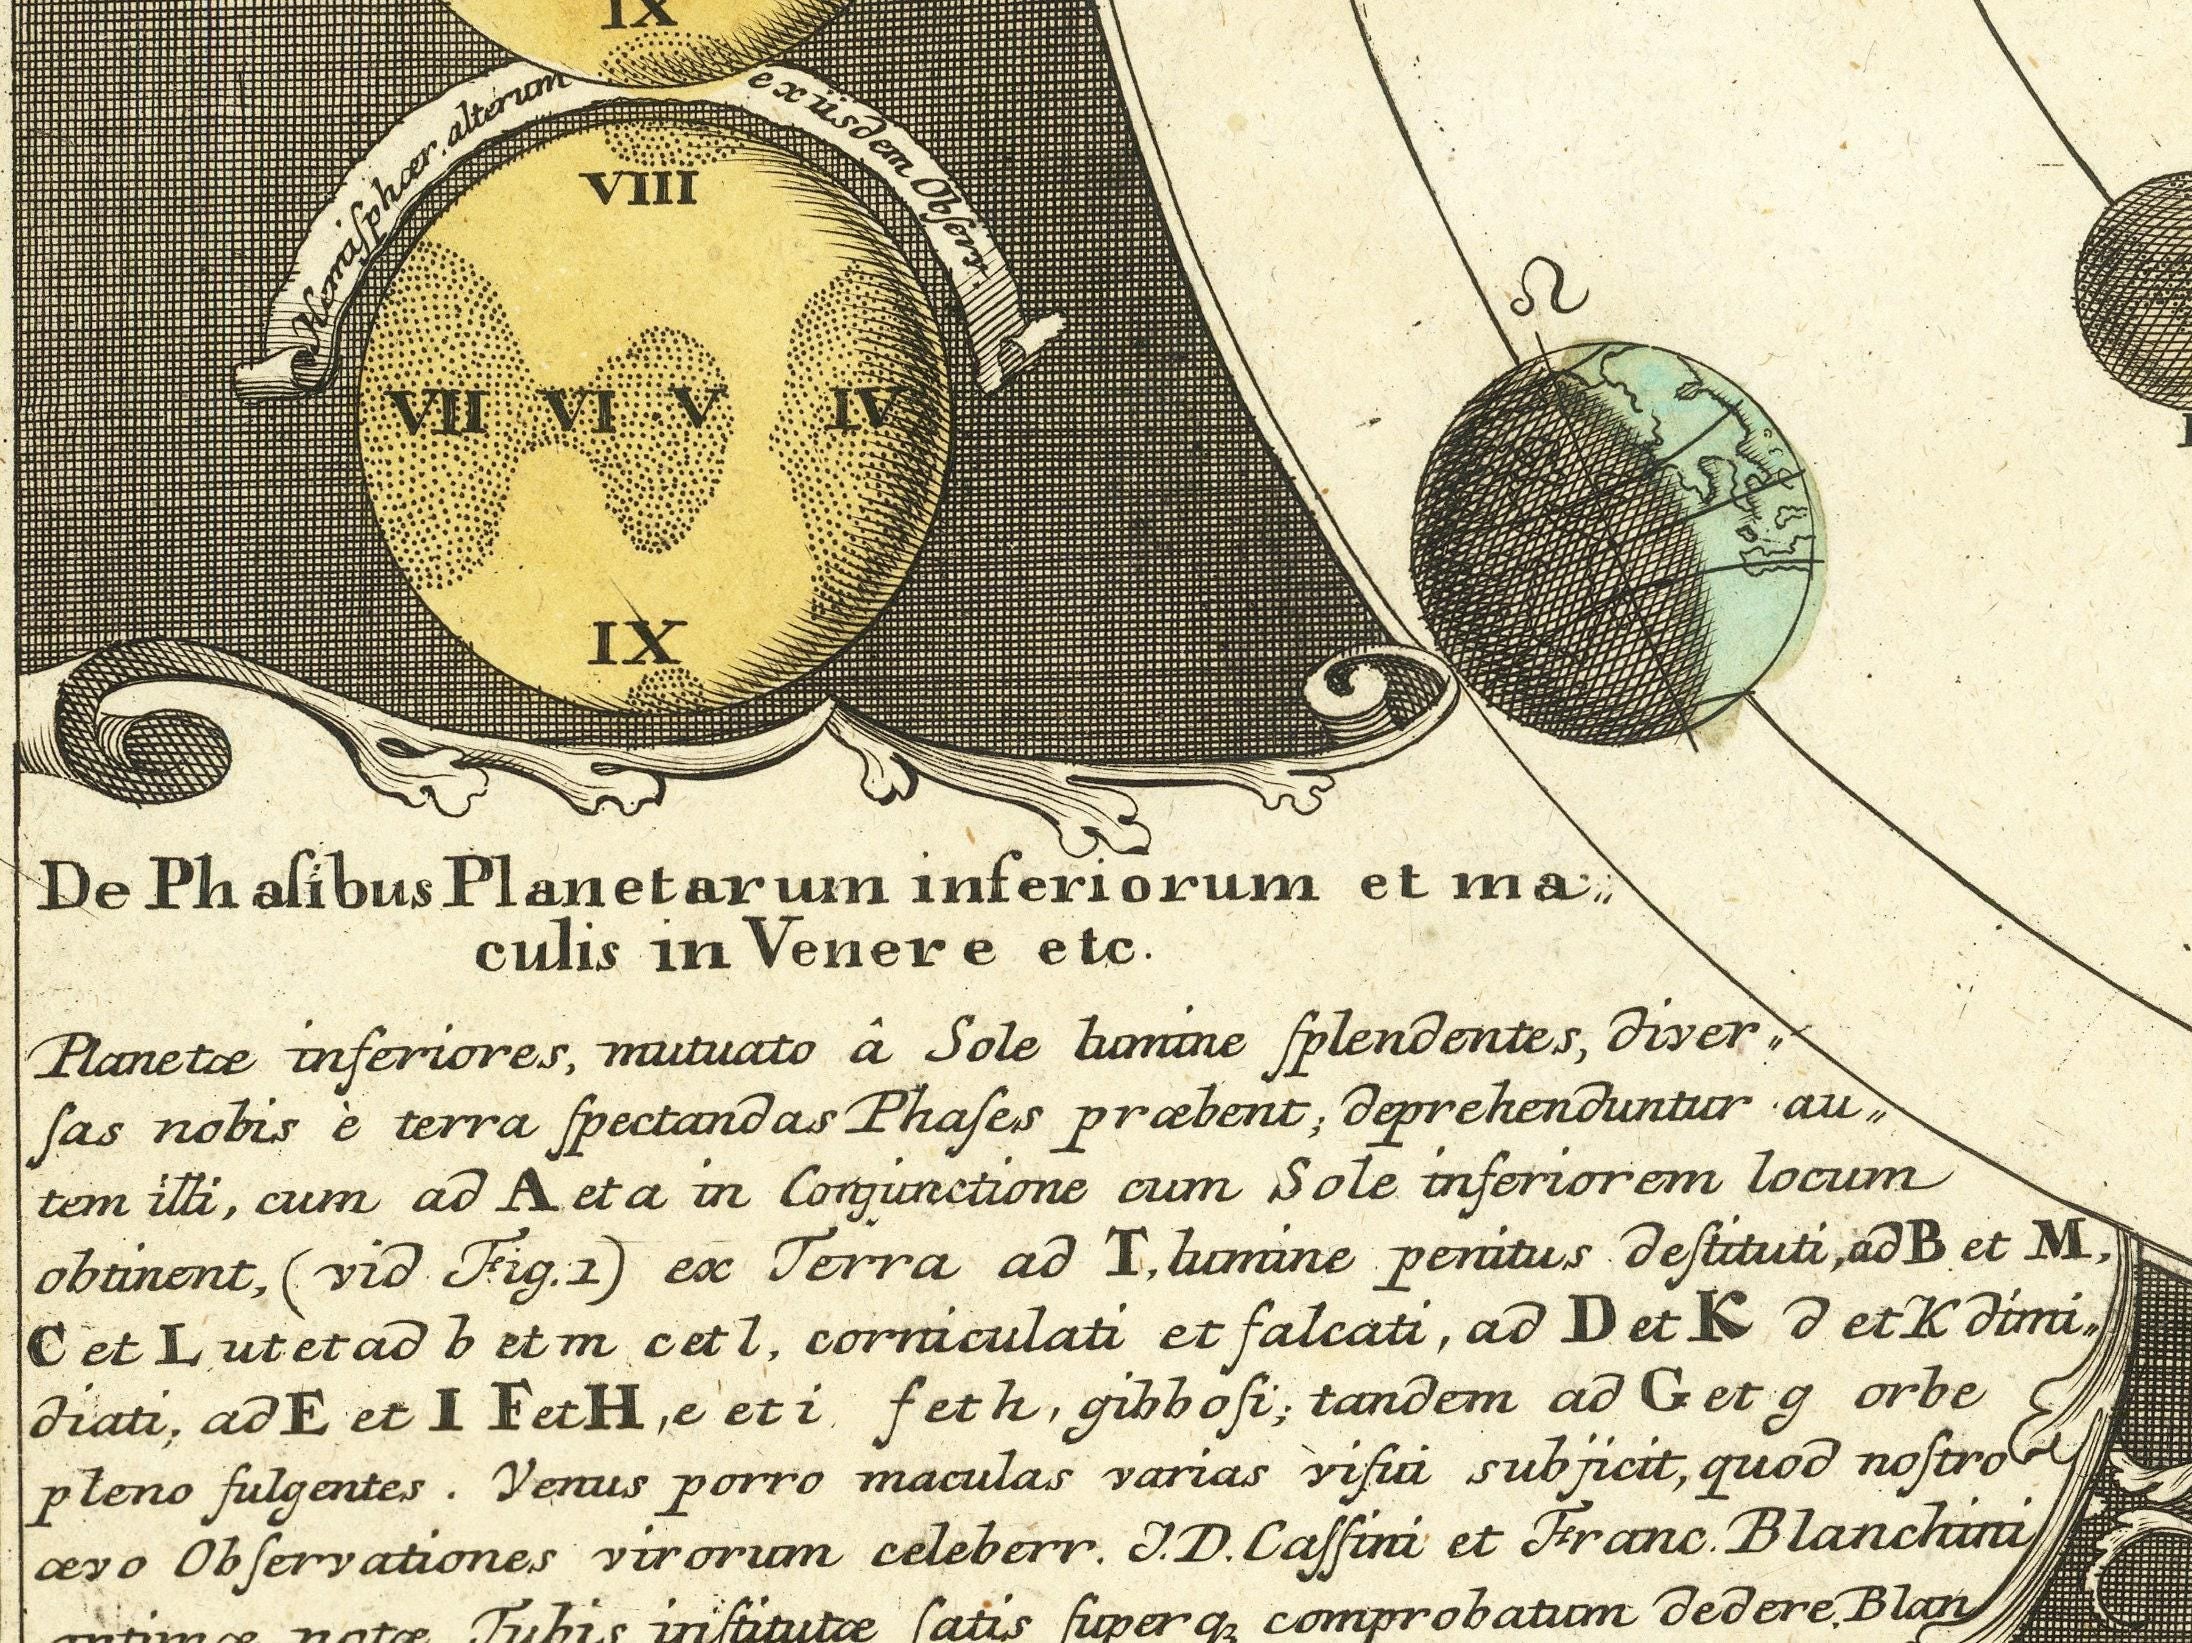 IX
Hemiſphær. alterum ex iisdem Obſerv.
VIII
VII VI V IV
IX
♌
De Phaſibus Planetarum inferiorum et ma„
culis in Venere etc.
Planetæ inferiores, mutuato â Sole lumine ſplendentes, diver„
ſas nobis è terra ſpectandas Phaſes præbent; deprehenduntur au„
tem illi, cum ad A et a in Conjunctione cum Sole inferiorem locum
obtinent, (vid Fig. 1) ex Terra ad T, lumine penitus deſtituti, ad B et M,
C et L ut et ad b et m c et l, corniculati et falcati, ad D et K d et K dimi„
diati, ad E et I F et H, e et i f et h, gibboſi; tandem ad G et g orbe
pleno fulgentes. Venus porro maculas varias viſui subjicit, quod noſtro
ævo Obſervationes virorum celeberr. J. D. Caſſini et Franc. Blanchini
optimæ notæ Tubis inſtitutæ ſatis ſuperq; comprobatum dedere. Blan